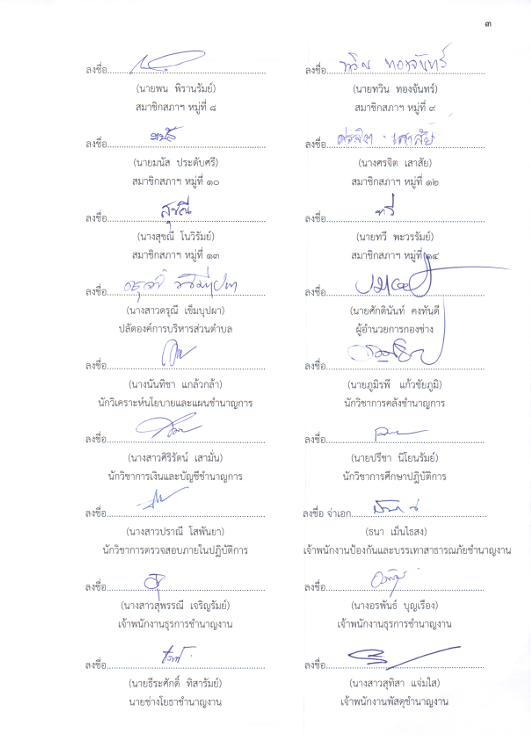 ๓
ลงชื่อ
(นายพน พิรานรัมย์)
สมาชิกสภาฯ หมู่ที่ ๘
ลงชื่อ ทวิน ทองจันทร์
(นายทวิน ทองจันทร์)
สมาชิกสภาฯ หมู่ที่ ๙
ลงชื่อ
(นายมนัส ประดับศรี)
สมาชิกสภาฯ หมู่ที่ ๑๐
ลงชื่อ ศรจิต เสาสัย
(นางศรจิต เสาสัย)
สมาชิกสภาฯ หมู่ที่ ๑๒
ลงชื่อ สุขณี
(นางสุขณี โนวิรัมย์)
สมาชิกสภาฯ หมู่ที่ ๑๓
ลงชื่อ ทวี
(นายทวี พะวรรัมย์)
สมาชิกสภาฯ หมู่ที่ ๑๔
ลงชื่อ
(นางสาวดรุณี เข็มบุปผา)
ปลัดองค์การบริหารส่วนตำบล
ลงชื่อ
(นายศักดินันท์ คงทันดี)
ผู้อำนวยการกองช่าง
ลงชื่อ
(นางนันทิชา แกล้วกล้า)
นักวิเคราะห์นโยบายและแผนชำนาญการ
ลงชื่อ
(นายภูมิรพี แก้วชัยภูมิ)
นักวิชาการคลังชำนาญการ
ลงชื่อ
(นางสาวศิริรัตน์ เสามั่น)
นักวิชาการเงินและบัญชีชำนาญการ
ลงชื่อ
(นายปรีชา นิโยนรัมย์)
นักวิชาการศึกษาปฏิบัติการ
ลงชื่อ
(นางสาวปราณี โสพันยา)
นักวิชาการตรวจสอบภายในปฏิบัติการ
ลงชื่อ จ่าเอก
(ธนา เม็นไธสง)
เจ้าพนักงานป้องกันและบรรเทาสาธารณภัยชำนาญงาน
ลงชื่อ
(นางสาวสุพรรณี เจริญรัมย์)
เจ้าพนักงานธุรการชำนาญงาน
ลงชื่อ
(นางอรพันธ์ บุญเรือง)
เจ้าพนักงานธุรการชำนาญงาน
ลงชื่อ
(นายธีระศักดิ์ ทิสารัมย์)
นายช่างโยธาชำนาญงาน
ลงชื่อ
(นางสาวสุทิสา แจ่มใส)
เจ้าพนักงานพัสดุชำนาญงาน